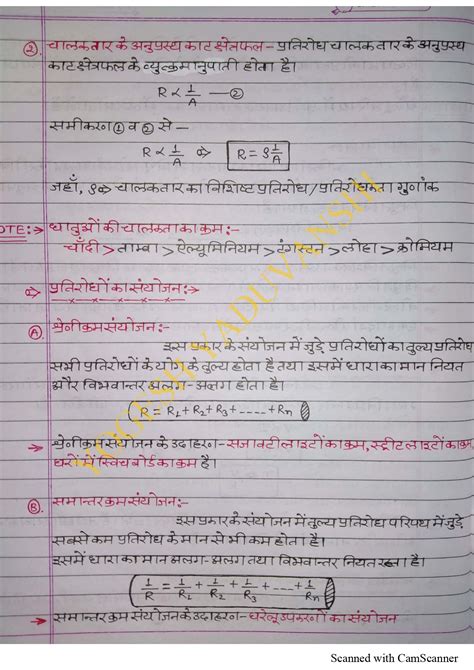 ②. चालकतार के अनुप्रस्थ काट क्षेत्रफल - प्रतिरोध चालकतार के अनुप्रस्थ
काट क्षेत्रफल के व्युत्क्रमानुपाती होता है।
R ∝ 1/A —②
समीकरण ① व ② से —
R ∝ 1/A ⇒ R = ρ 1/A
जहाँ, ρ ⇒ चालकतार का विशिष्ट प्रतिरोध / प्रतिरोधकता गुणांक
OTE:→ धातुओं की चालकता का क्रम:-
चाँदी > ताम्बा > ऐल्यूमिनियम > टंगस्टन > लोहा > क्रोमियम
⇒ प्रतिरोधों का संयोजन:→
Ⓐ. श्रेणीक्रम संयोजन:-
इस प्रकार के संयोजन में जुड़े प्रतिरोधों का तुल्य प्रतिरोध
सभी प्रतिरोधों के योग के तुल्य होता है तथा इसमें धारा का मान नियत
और विभवान्तर अलग-अलग होता है।
R = R₁+R₂+R₃+-----+Rn
→ श्रेणीक्रम संयोजन के उदाहरण - सजावटी लाइटों का क्रम, स्ट्रीट लाइटों का क्र
घरों में स्विच बोर्ड का क्रम है।
Ⓑ. समान्तर क्रम संयोजन:-
इस प्रकार के संयोजन में तुल्य प्रतिरोध परिपथ में जुड़े
सबसे कम प्रतिरोध के मान से भी कम होता है।
इसमें धारा का मान अलग-अलग तथा विभवान्तर नियत रहता है।
1/R = 1/R₁ + 1/R₂ + 1/R₃ + ---- + 1/Rn
→ समान्तर क्रम संयोजन के उदाहरण - घरेलू उपकरणों का संयोजन
YOGESH YADUVANSHI
Scanned with CamScanner